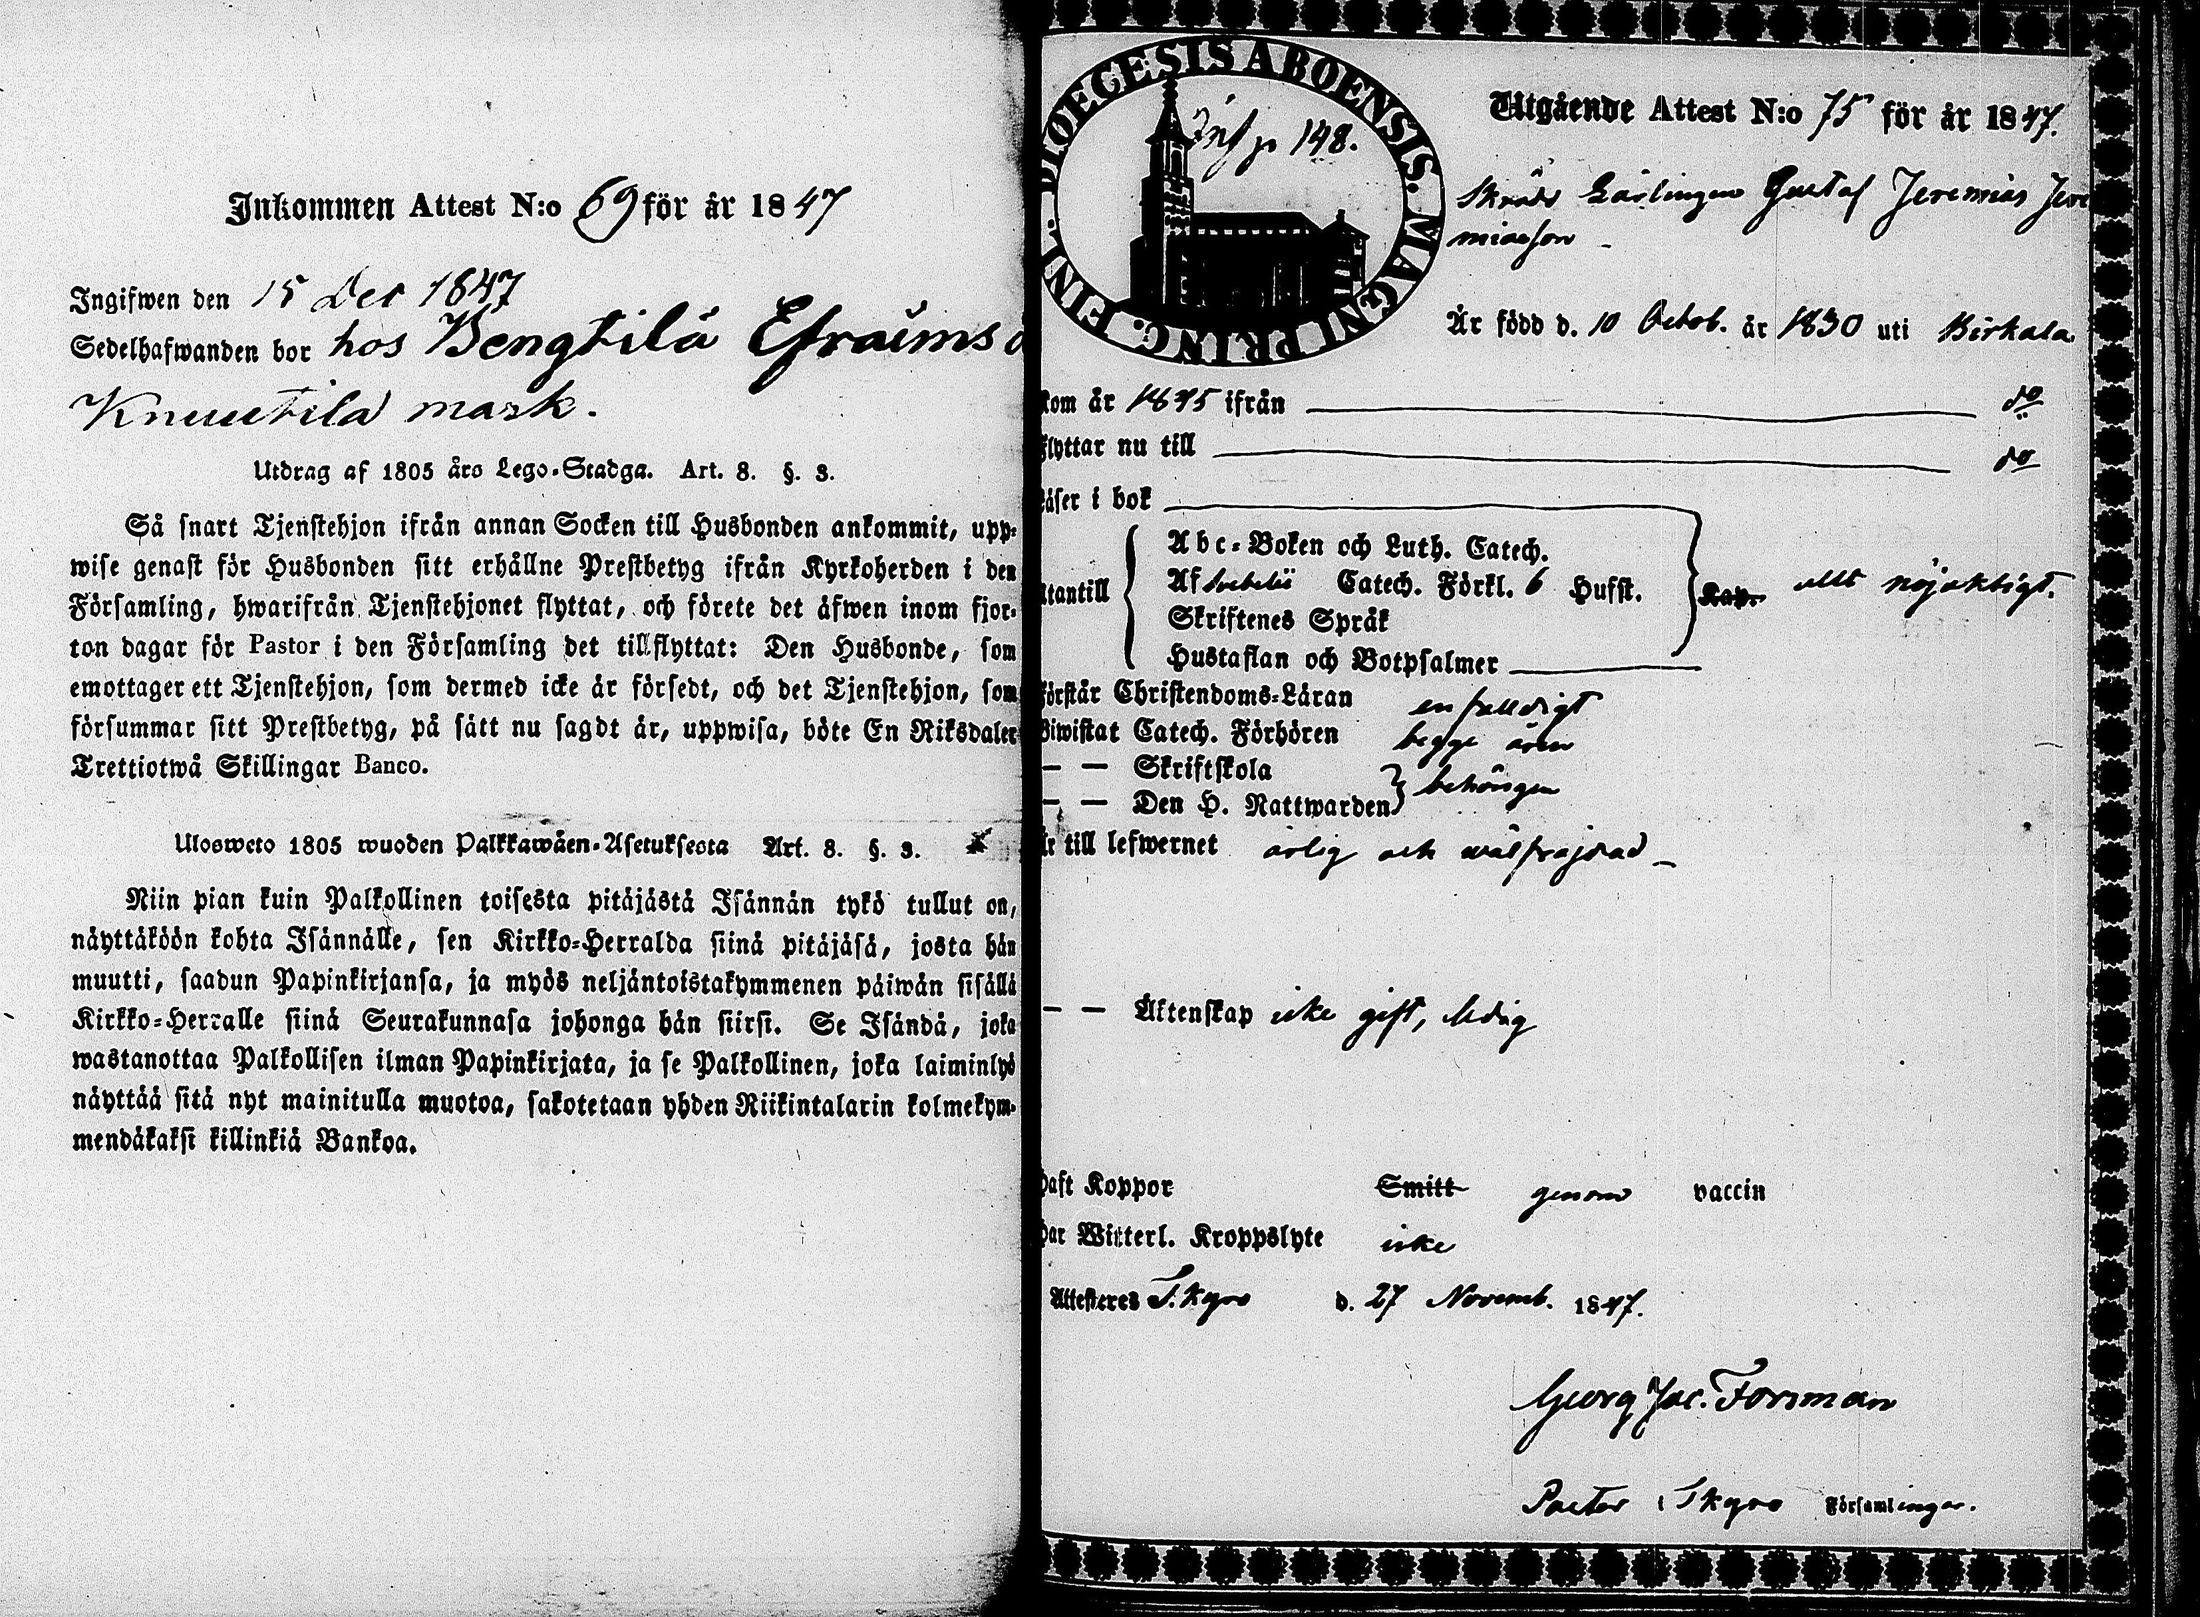 Inkommen Attest N:o 69 för år 1847
Ingifwen den 15 Dec 1847
Sedelhafwanden bor hos Bengtilä Efraims
Knuutila mark.
Utdrag af 1805 års Lego-Stadga. Art. 8. §. 3.
Så snart Tjenstehjon ifrån annan Socken till Husbonden ankommit, upp-
wise genast för Husbonden sitt erhållne Prestbetyg ifrån Kyrkoherden i den
Församling, hwarifrån Tjenstehjonet flyttat, och förete det äfwen inom fjor-
ton dagar för Pastor i den Församling det tillflyttat: Den Husbonde, som
emottager ett Tjenstehjon, som dermed icke är försedt, och det Tjenstehjon, som
försummar sitt Prestbetyg, på sätt nu sagdt är, uppwisa, böte En Riksdaler
Trettiotwå Skillingar Banco.
Ulosweto 1805 wuoden Palkkawäen-Asetuksesta Art. 8. §. 3.
Niin pian kuin Palkollinen toisesta pitäjästä Isännän tykö tullut on,
näyttäköön kohta Isännälle, sen Kirkko-Herralda siinä pitäjäsä, josta hän
muutti, saadun Papinkirjansa, ja myös neljäntoistakymmenen päiwän sisällä
Kirkko-Herralle siinä Seurakunnasa johonga hän siirsi. Se Isändä, joka
wastanottaa Palkollisen ilman Papinkirjata, ja se Palkollinen, joka laiminlyö
näyttää sitä nyt mainitulla muotoa, sakotetaan yhden Riikintalarin kolmekym-
mendäkaksi killinkiä Bankoa.
DIOECESIS ABOENSIS. MAGNI PRINC. FINL.
Inf p 148.
Utgående Attest N:o 75 för år 1847.
Skrädd Lärlingen Gustaf Jeremias Jere
miasson
Är född d. 10 Octob. år 1830 uti Birkala
kom år 1845 ifrån do
flyttar nu till do
Läser i bok
Utantill
Abc-Boken och Luth. Catech.
Af Svebelii Catech. Förkl. 6 Hufst.
Skriftenes Språk
Hustaflan och Botpsalmer
Kap. allt nöjaktigt.
Förstår Christendoms-Läran enfalldigt
Biwistat Catech. Förhören begge åren
— — Skriftskola
— — Den H. Nattwarden behörigen
Är till lefwernet ärlig och wälfräjdad
— — Äktenskap icke gift, ledig
Haft Koppor Smitt genom vaccin
Har Witterl. Kroppslyte icke
Attesteres T.kyro d. 27 Novemb. 1847.
Georg Jac. Forsman
Pastor i T.kyro Församlingar.